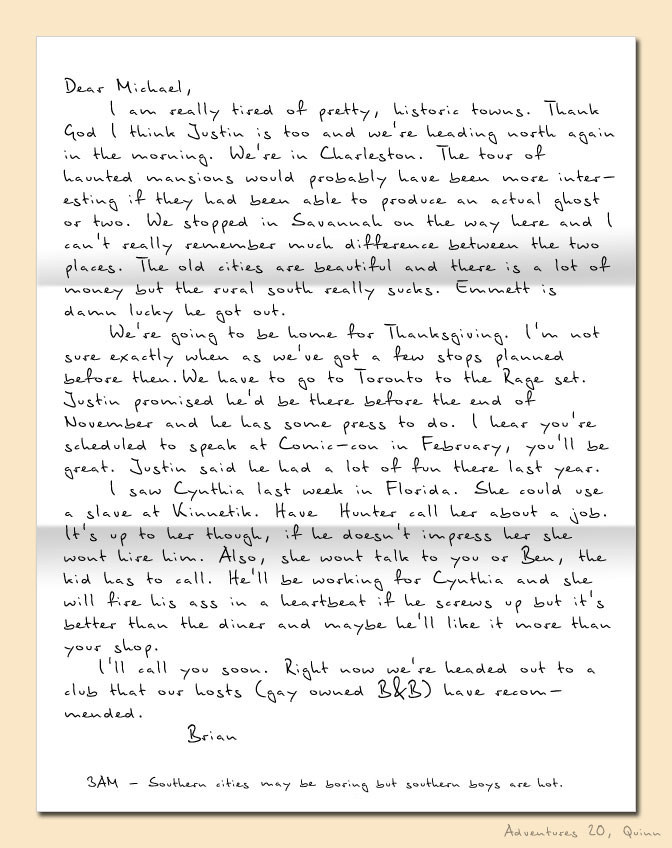 Dear Michael,
I am really tired of pretty, historic towns. Thank
God I think Justin is too and we're heading north again
in the morning. We're in Charleston. The tour of
haunted mansions would probably have been more inter-
esting if they had been able to produce an actual ghost
or two. We stopped in Savannah on the way here and I
can't really remember much difference between the two
places. The old cities are beautiful and there is a lot of
money but the rural south really sucks. Emmett is
damn lucky he got out.
We're going to be home for Thanksgiving. I'm not
sure exactly when as we've got a few stops planned
before then. We have to go to Toronto to the Rage set.
Justin promised he'd be there before the end of
November and he has some press to do. I hear you're
scheduled to speak at Comic-con in February, you'll be
great. Justin said he had a lot of fun there last year.
I saw Cynthia last week in Florida. She could use
a slave at Kinnetik. Have Hunter call her about a job.
It's up to her though, if he doesn't impress her she
wont hire him. Also, she wont talk to you or Ben, the
kid has to call. He'll be working for Cynthia and she
will fire his ass in a heartbeat if he screws up but it's
better than the diner and maybe he'll like it more than
your shop.
I'll call you soon. Right now we're headed out to a
club that our hosts (gay owned B&B) have recom-
mended.
Brian
3AM - Southern cities may be boring but southern boys are hot.
Adventures 20, Quinn